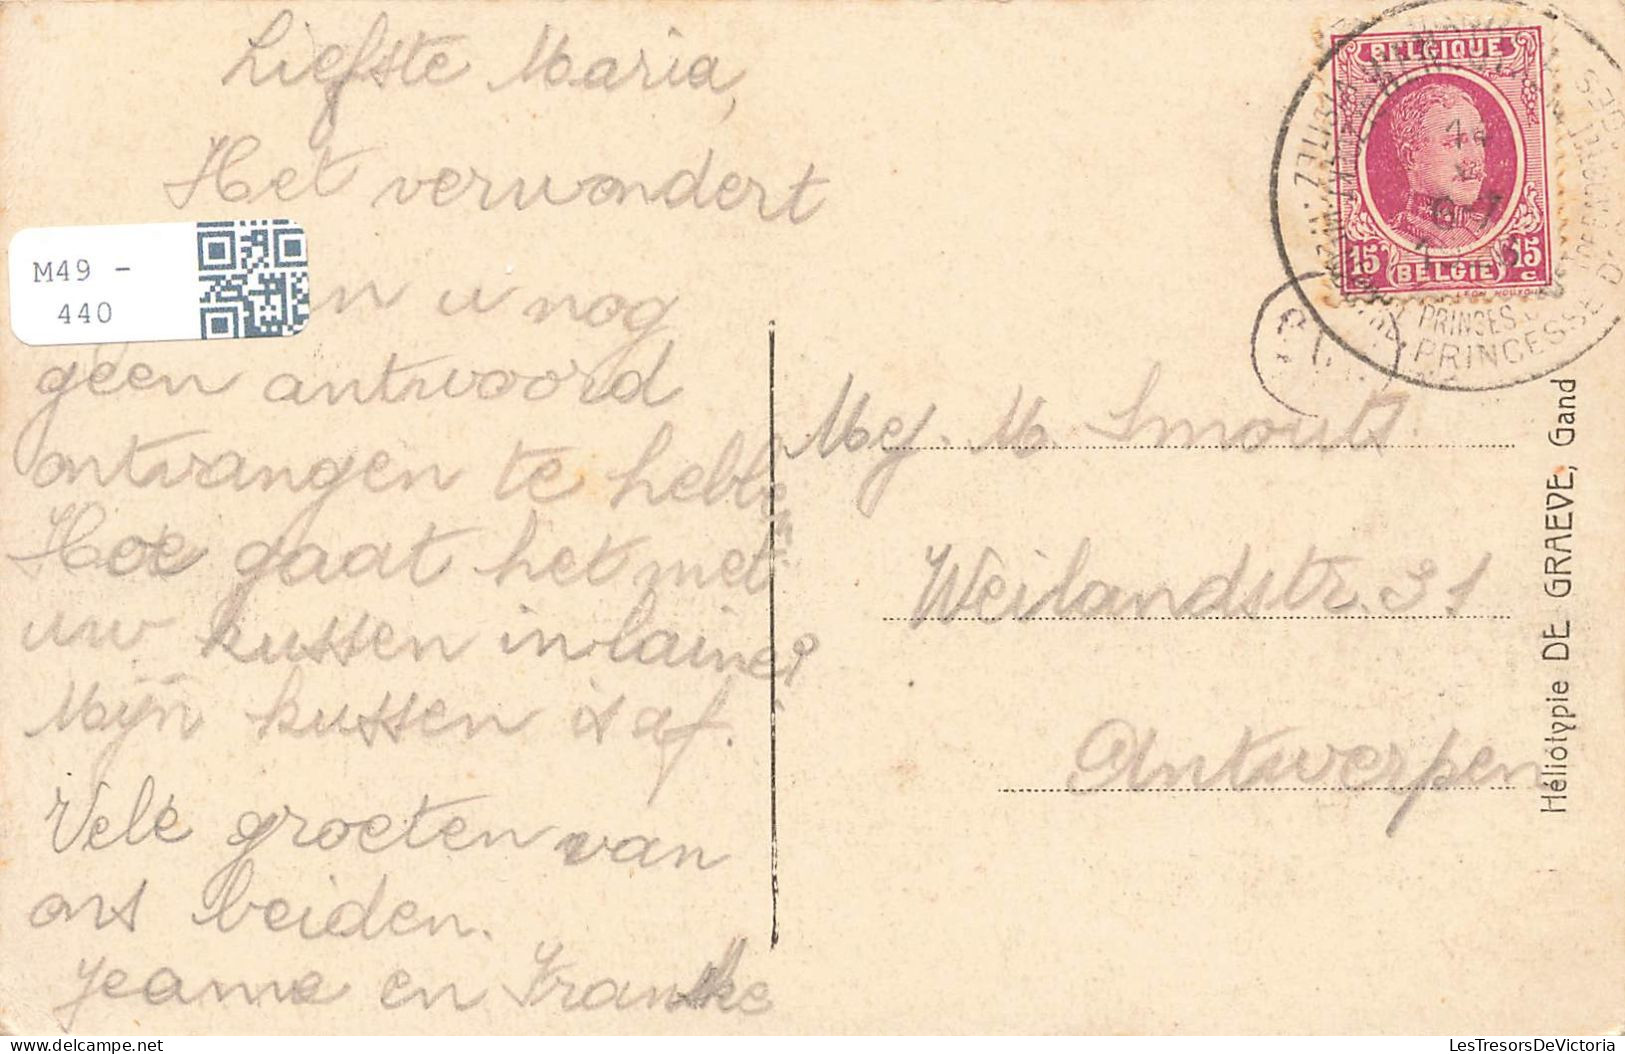 Liefste Maria,
Het verwondert
M49 -
440
n u nog
geen antwoord
ontvangen te hebbe
Hoe gaat het met
uw kussen in laine?
Mijn kussen is af.
Vele groeten van
ons beiden.
Jeanne en Franske
BELGIQUE
15 BELGIE 15
c c
PRINSES
PRINCESSE
VISITEZ
Mej. M. Smout
Weilandstr. 31
Antwerpen
Héliotypie DE GRAEVE, Gand
delcampe.net
LesTresorsDeVictoria